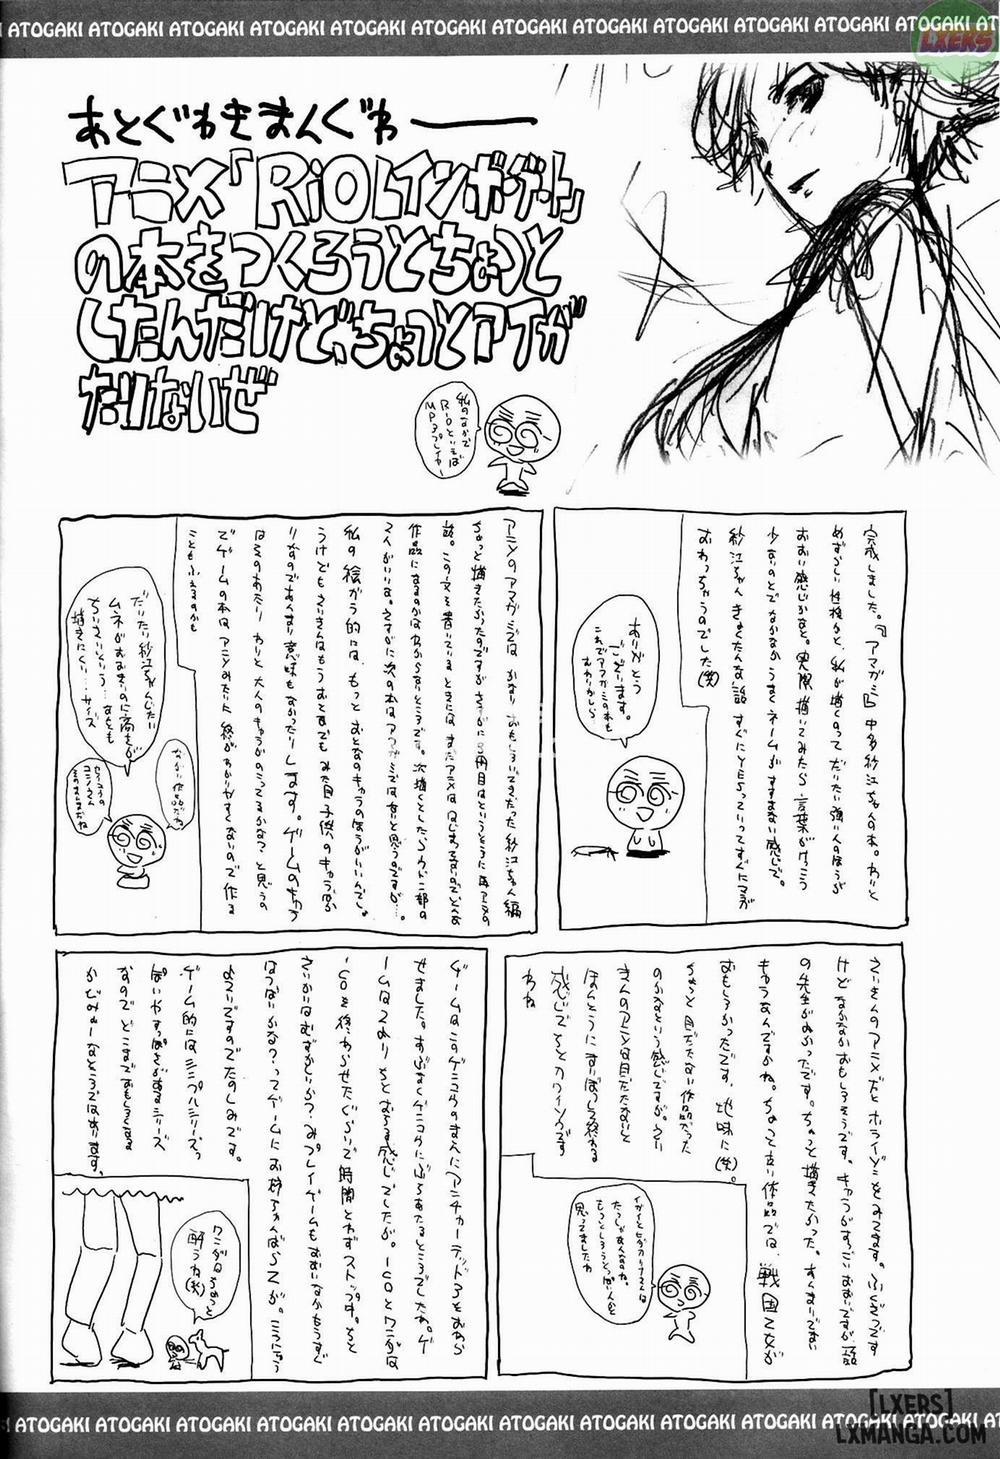 ATOGAKI ATOGAKI ATOGAKI ATOGAKI ATOGAKI ATOGAKI ATOGAKI ATOGAKI ATOGAKI
LXERS
あとぐわきまんぐわ——
アニメ「RiOレインボーゲート」
の本をつくろうとちょっと
したんだけど、ちょっとアイが
たりないぜ
私のなかで
RiOといえば
MP3プレイヤー
完成しました。『アマガミ』中多紗江ちゃんの本。わりと
めずらしい性格かと、私が描くのってだいたい強い人のほうが
おおい感じかなと。実際描いてみたら、言葉がけっこう
少ないのとでなかなかうまくネームがすすまない感じで。
紗江ちゃんきょくたんな話すぐにYESっていってすぐにマンガ
おわっちゃうのでした(笑)
ありがとう
ございます。
これでアマガミの本も
おわりかしら
アニメのアマガミではかなりおもしろいできだった紗江ちゃん編
ちょっと描きたかったのですがさすがに3冊目はというところに
話。この文を書いているときにはまだアニメははじまってないのでどんな
作品になるのかはわからないところです。次描くとしたら
私の絵がら的には、もっとおとなのキャラのほうがいいんでしょ
うけどもさいきんはもうおとなでもみた目子供のキャラばか
りなのであんまり意味もなかったりします。ゲームのちがう
はそのあたりわりと大人のキャラがのこってるかな?と思うの
でゲームの本はアニメみたいに終わりがわかりやすくないので作る
こともふえるのかも
だいたい紗江ちゃんじたい
ムネがおおきいのに背が
ちいさいという…なんとも
描きにくい…サイズ
ながい作品だね
さいきんのアニメだとホライゾンをみてます。ふくざつです
けどなかなかおもしろそうです。キャラがすっごいおおいですが
の先生がよかったです。ちょっと描きたかった。
キャラなんですかね。ちょっと古い作品では、戦国乙女が
おもしろかったです。地味に(笑)。
ちょっと目だたない作品だった
のかなという感じですが。さい
きんのアニメは目だたないと
ほんとうにまいぼつして終わる
感じでちとカワイソウです
わね
イガイとヒデヨシナさんは
たっしゃなんのね。
もっとしろうとっぽい人かと
思ってましたわ
ゲームはこのゲンコウのまえにアンチャーテッド3をおわら
せました。すばらしくゲンコウにぶちあたるところでしたわ。ゲ
ームは2よりちとおちる感じでしたが。ICOとワンダは
ICOを終わらせたぐらいで時間とれずストップ中。ちと
さいかいはむずかしいかな?プレイゲームもおおいなかもうすぐ
はつばいかな?ってゲームにお姉ちゃんばらZが。こうにゅう
よていですのでたのしみです。
ゲーム的にはシンプルシリーズっ
ぽいやすっぽさがあるシリーズ
なのでどこまでおもしろくなる
かびみょーなところではあります。
ワンダはちょっと
酔うね(笑)
ATOGAKI ATOGAKI ATOGAKI ATOGAKI ATOGAKI ATOGAKI ATOGAKI ATOGAKI ATOGAKI
[LXERS]
LXMANGA.COM